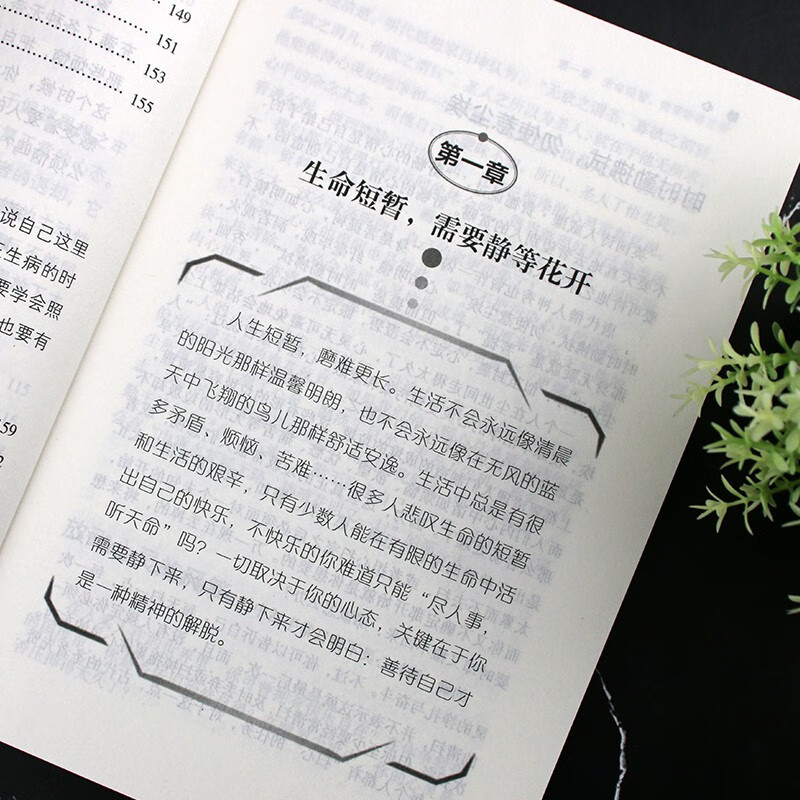 149
151
153
155
说自己这里
生病的时
要学会照
也要有
159
第一章
生命短暂，需要静等花开
人生短暂，磨难更长。生活不会永远像清晨
的阳光那样温馨明朗，也不会永远像在无风的蓝
天中飞翔的鸟儿那样舒适安逸。生活中总是有很
多矛盾、烦恼、苦难……很多人悲叹生命的短暂
和生活的艰辛，只有少数人能在有眼的生命中活
出自己的快乐，不快乐的你难道只能“尽人事，
听天命”吗？一切取决于你的心态，关键在于你
需要静下来，只有静下来才会明白：善待自己才
是一种精神的解脱。